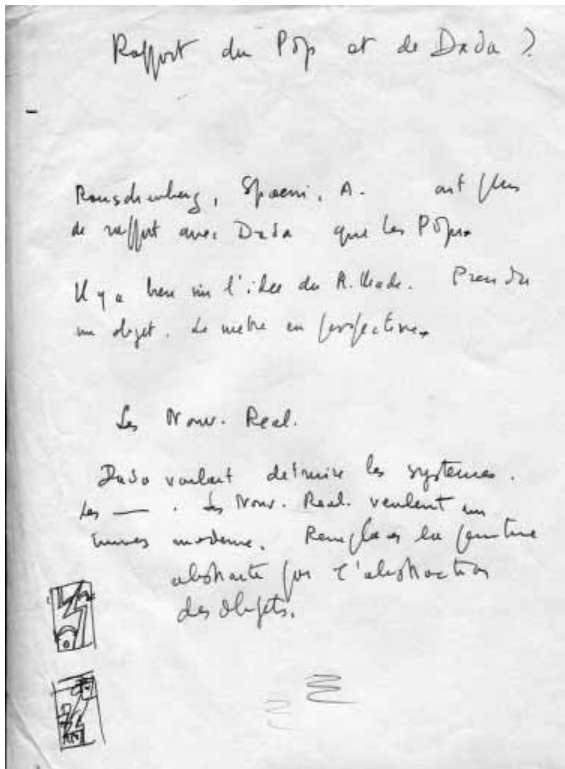 Rapport du Pop et de Dada ?
Rauschenberg, Spoerri, A. ont plus
de rapport avec Dada que les Pops
Il y a bien sûr l'idée du R. Made. Prendre
un objet. Le metre en perspective
Les Nouv. Real.
Dada voulait détruire les systemes.
Les — . Les Nouv. Real. veulent un
moderne. Remplacer la peinture
abstraite par l'abstraction
des objets.